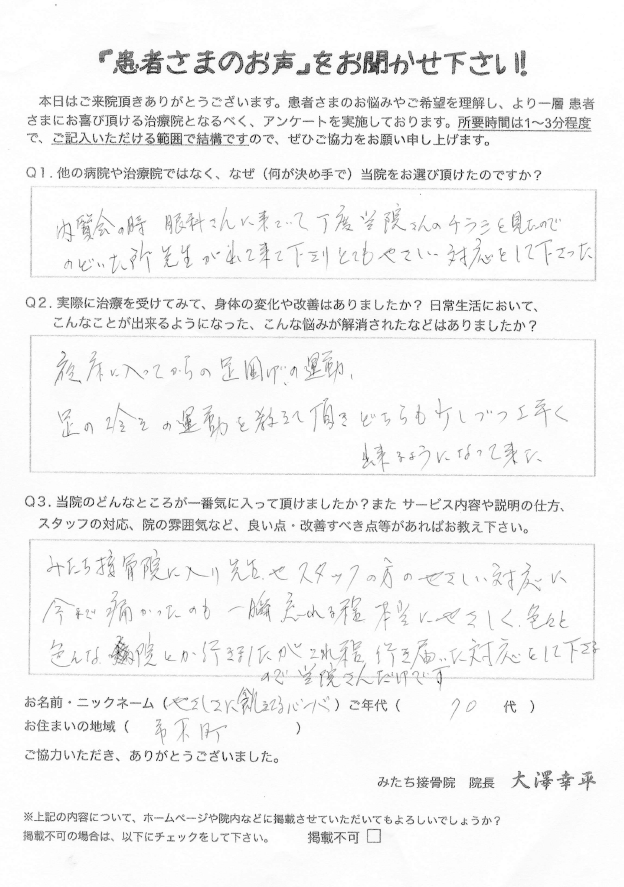 『患者さまのお声』をお聞かせ下さい!
本日はご来院頂きありがとうございます。患者さまのお悩みやご希望を理解し、より一層 患者
さまにお喜び頂ける治療院となるべく、アンケートを実施しております。所要時間は1〜3分程度
で、ご記入いただける範囲で結構ですので、ぜひご協力をお願い申し上げます。
Q1. 他の病院や治療院ではなく、なぜ（何が決め手で）当院をお選び頂けたのですか？
内覧会の時 眼科さんに来ていて丁度学院さんのチラシを見たので
のぞいた所 先生が 来て下さりとてもやさしい対応をして下さった
Q2. 実際に治療を受けてみて、身体の変化や改善はありましたか？ 日常生活において、
こんなことが出来るようになった、こんな悩みが解消されたなどはありましたか？
寝床に入ってからの足 の運動、
足の 運動を教えて頂きどちらも少しづつ上手く
出来るようになって来た
Q3. 当院のどんなところが一番気に入って頂けましたか？また サービス内容や説明の仕方、
スタッフの対応、院の雰囲気など、良い点・改善すべき点等があればお教え下さい。
みたち接骨院に入り先生やスタッフの方のやさしい対応に
今まで痛かったのも一瞬忘れる程 本当にやさしく、色々と
色んな病院とか行きましたがこれ程 行き届いた対応をして下さる
ので学院さんだけです
お名前・ニックネーム（やさしさに飢えてるバーバ）ご年代（ 70 代 ）
お住まいの地域（ 町 ）
ご協力いただき、ありがとうございました。
みたち接骨院 院長 大澤幸平
※上記の内容について、ホームページや院内などに掲載させていただいてもよろしいでしょうか？
掲載不可の場合は、以下にチェックをして下さい。 掲載不可 □